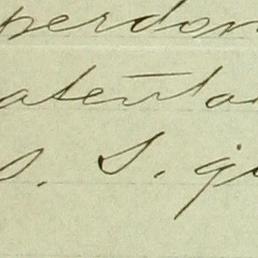 perdon
atenta
s. S. q